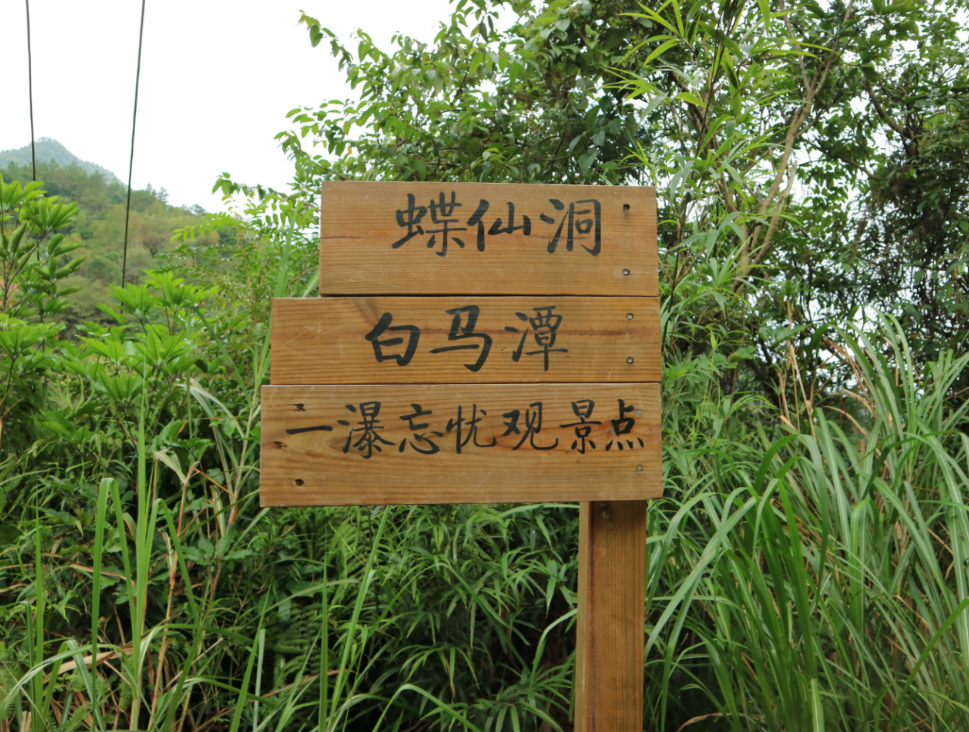 蝶仙洞
白马潭
一瀑忘忧观景点